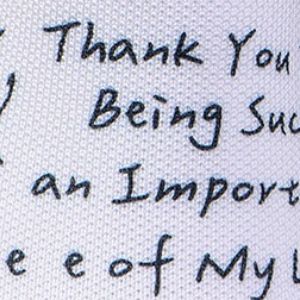 Thank You
Being Suc
an Import
e e of My